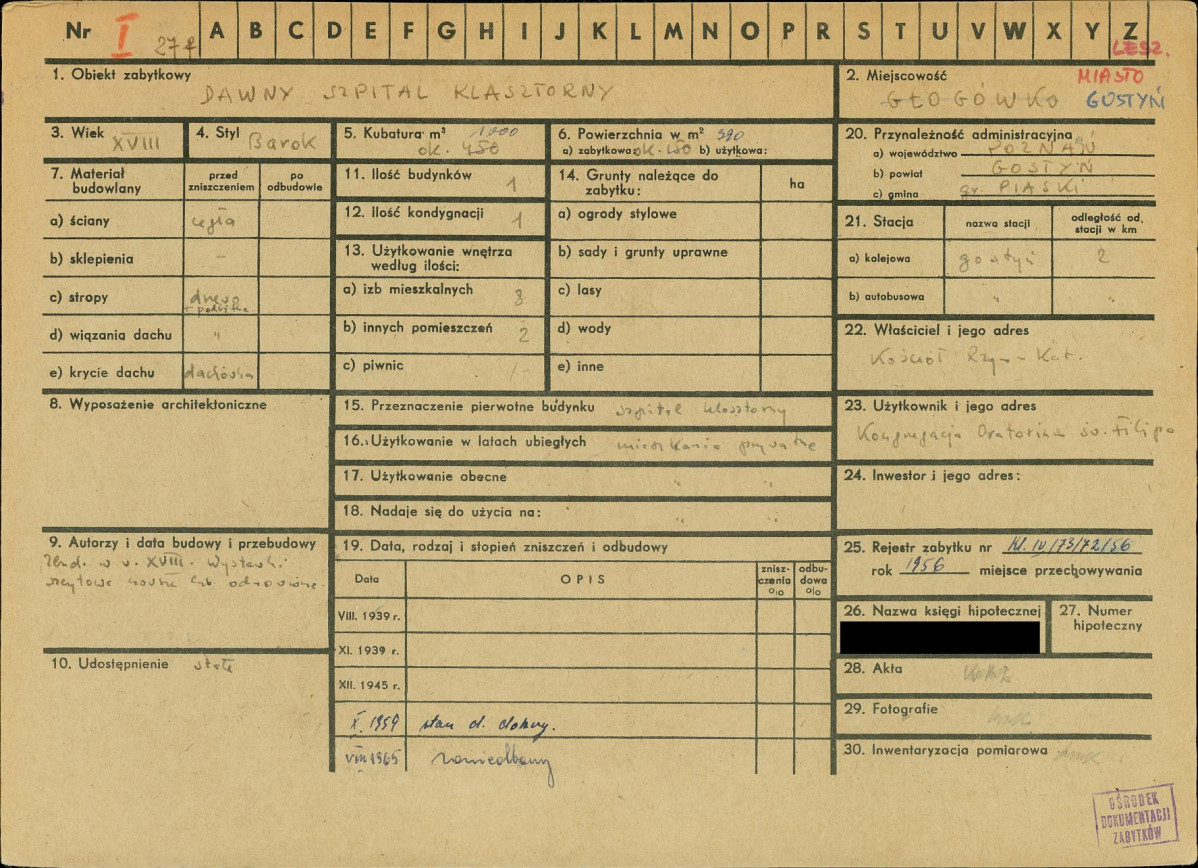 Nr I 27 A B C D E F G H I J K L M N O P R S T U V W X Y Z
LESZ.
1. Obiekt zabytkowy
DAWNY SZPITAL KLASZTORNY
2. Miejscowość
MIASTO
GŁOGÓWKO GOSTYŃ
3. Wiek XVIII
4. Styl Barok
5. Kubatura m³ 1000
ok. 450
6. Powierzchnia w m²
a) zabytkowa: ok. b) użytkowa:
7. Materiał budowlany
przed zniszczeniem
po odbudowie
a) ściany cegła
b) sklepienia –
c) stropy drewno
d) wiązania dachu "
e) krycie dachu dachówka
8. Wyposażenie architektoniczne
9. Autorzy i data budowy i przebudowy
Zbud. w w. XVIII. Wystawki
szczytowe
10. Udostępnienie
11. Ilość budynków 1
12. Ilość kondygnacji 1
13. Użytkowanie wnętrza
według ilości:
a) izb mieszkalnych 8
b) innych pomieszczeń 2
c) piwnic –
14. Grunty należące do
zabytku:
ha
a) ogrody stylowe
b) sady i grunty uprawne
c) lasy
d) wody
e) inne
15. Przeznaczenie pierwotne budynku szpital klasztorny
16. Użytkowanie w latach ubiegłych mieszkania prywatne
17. Użytkowanie obecne " "
18. Nadaje się do użycia na: " "
19. Data, rodzaj i stopień zniszczeń i odbudowy
Data
OPIS
znisz-
czenia
%
odbu-
dowa
%
VIII. 1939 r.
XI. 1939 r.
XII. 1945 r.
X. 1959 stan d. dobry.
VIII 1965 zaniedbany
20. Przynależność administracyjna
a) województwo POZNAŃ
b) powiat GOSTYŃ
c) gmina gr. PIASKI
21. Stacja
nazwa stacji
odległość od
stacji w km
a) kolejowa gostyń 2
b) autobusowa " "
22. Właściciel i jego adres
Kościół Rzym-Kat.
23. Użytkownik i jego adres
Kongregacja Oratorium św. Filipa
24. Inwestor i jego adres:
25. Rejestr zabytku nr Kl. IV/73/72/56
rok 1956 miejsce przechowywania
26. Nazwa księgi hipotecznej
27. Numer
hipoteczny
28. Akta
29. Fotografie
30. Inwentaryzacja pomiarowa
OŚRODEK
DOKUMENTACJI
ZABYTKÓW